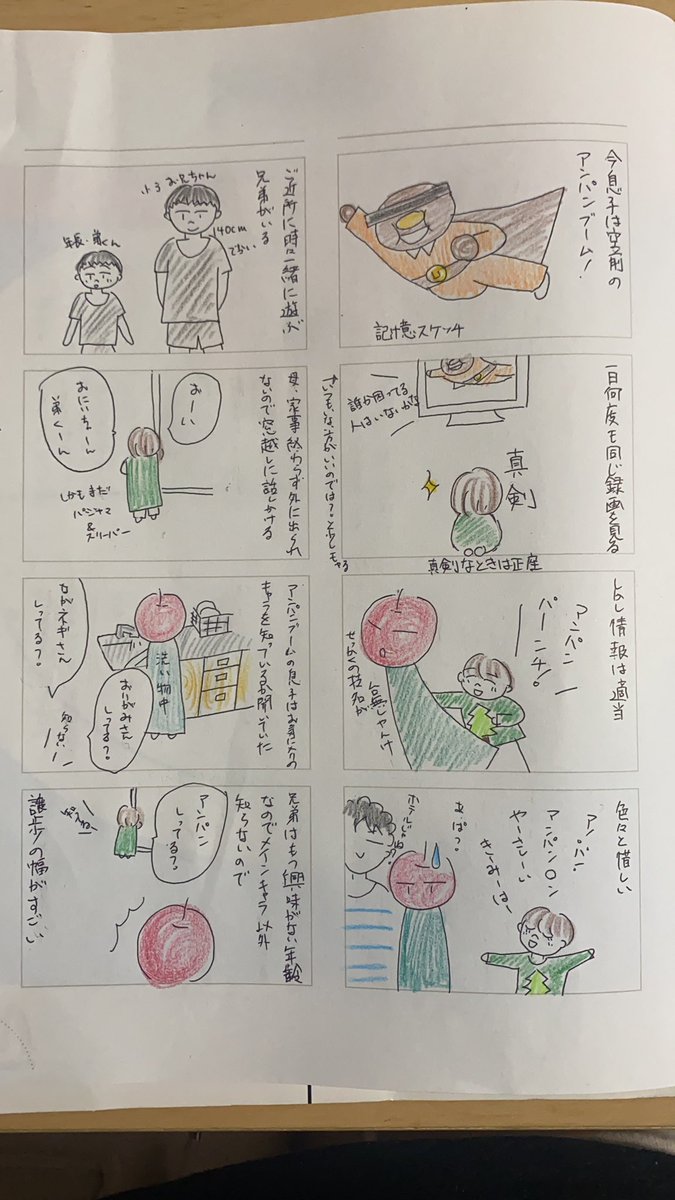 今息子は空前の
アンパンブーム!
記憶スケッチ
一日何度も同じ録画を見る
誰か困ってる
人はいないかな
真剣
真剣なときは正座
アンパン
パーンチ!
せっかくの技名が
色々と惜しい
アンパン
アンパン〇ン
やーさしーい
きーみーはー
あぱ?
ホテルじゃね?
ご近所に時々一緒に遊ぶ
兄弟がいる
小3 お兄ちゃん
140cm
でかい
年長・弟くん
母、家事終わらず外に出られ
ないので窓越しに話しかける
おーい
おにいちゃーん
弟くーん
しかもまだ
パジャマ
&
スリーパー
アンパンブームの息子はお気に入りの
キャラを知っているか聞いていた
洗い物中
おりがみさん
しってる?
ながネギさん
しってる?
知らない!
兄弟はもう興味がない年齢
なのでメインキャラ以外
知らないので
アンパン
しってる?
譲歩の幅がすごい